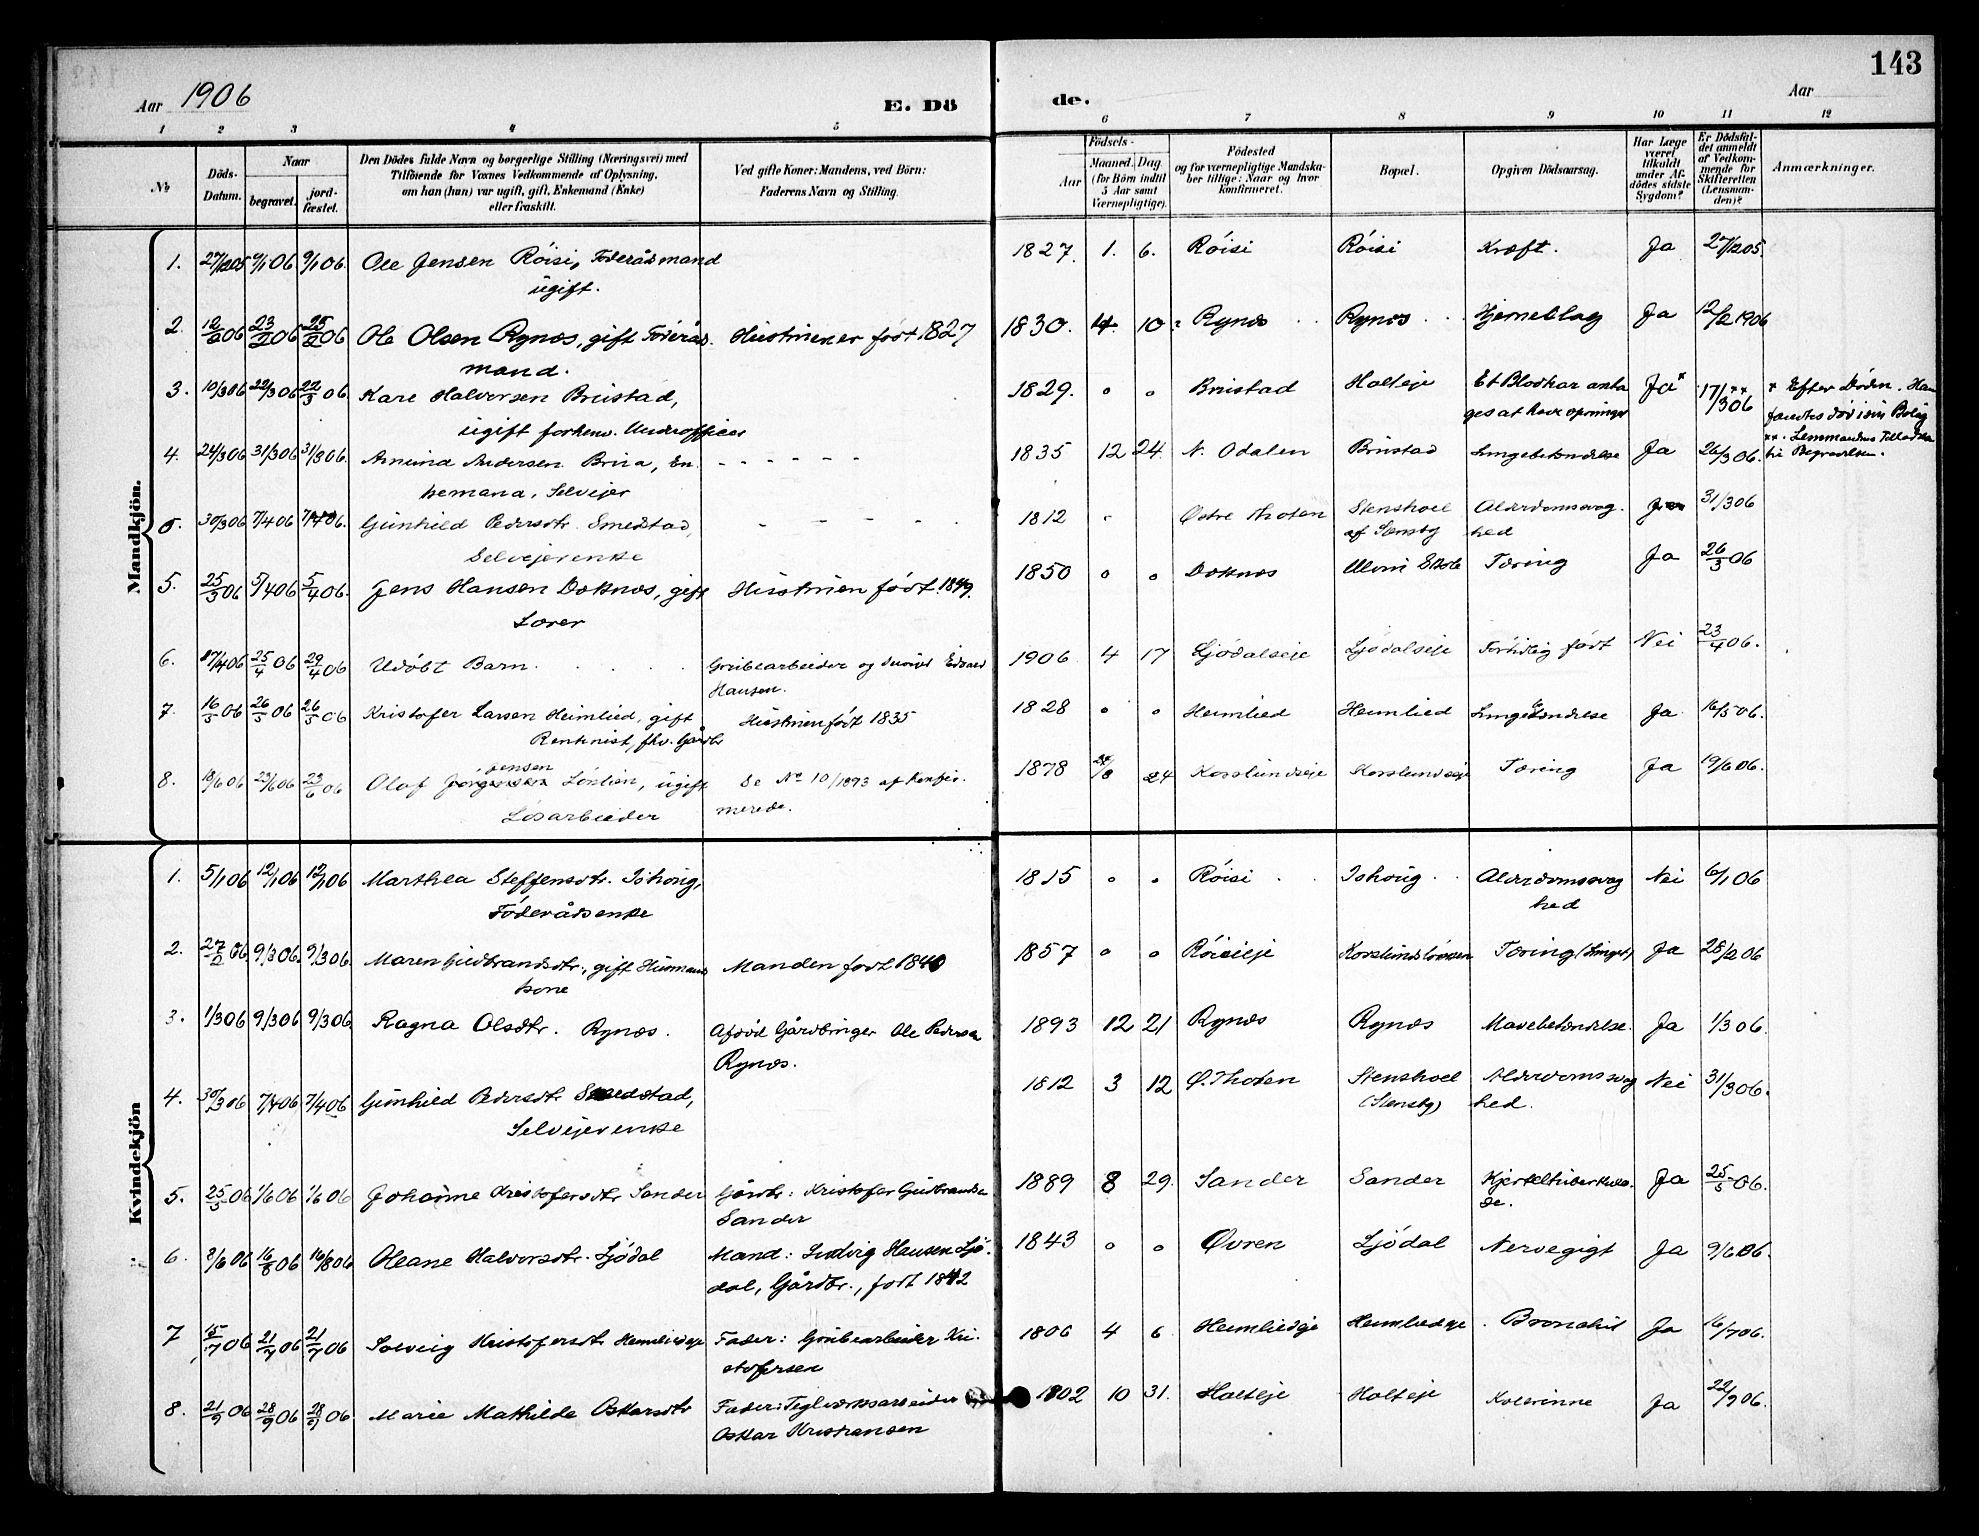 143
Aar 1906
E. Dö
de.
Aar
1 2 3 4 5 6 7 8 9 10 11 12
No
Döds-
Datum.
Naar
begravet.
jord-
fæstet.
Den Dödes fulde Navn og borgerlige Stilling (Næringsvei) med
Tilföiende for Voxnes Vedkommende af Oplysning,
om han (hun) var ugift, gift, Enkemand (Enke)
eller fraskilt.
Ved gifte Koner: Mandens, ved Börn:
Faderens Navn og Stilling.
Födsels-
Aar
Maaned. Dag
(for Börn indtil
5 Aar samt
Værnepligtige).
Födested
og for værnepligtige Mandska-
ber tillige: Naar og hvor
konfirmeret.
Bopæl.
Opgiven Dödsaarsag.
Har Læge
været
tilkaldt
under Af-
dödes sidste
Sygdom?
Er Dödsfal-
det anmeldt
af Vedkom-
mende for
Skifteretten
(Lensman-
den)?
Anmærkninger.
Mandkjön.
1. 27/1205 9/1 06 9/1 06. Ole Jensen Röisi, Föderådsmand 1827. 1. 6. Röisi Röisi Kræft. Ja 27/1205
ugift.
2. 12/2 06 23/2 06 25/2 06 Ole Olsen Rynæs, gift Föderåds Hustruen er født 1827 1830. 4. 10 Rynæs Rynæs Hjerneslag Ja 12/2 1906
mand.
3. 10/3 06 22/3 06 22/3 06 Kare Halvorsen Brustad, 1829. " " Brustad Holteje Et Blodkar anta Ja* 17/3 06 ** * Efter Døden. Han
ugift forhenv. Underofficer ges at have fandtes død i sin Bolig
4. 24/3 06 31/3 06 31/3 06. Amund Andersen En 1835 12 24 N. Odalen Brustad Lungebetændelse Ja 26/3 06. ** Lensmandens Tilladelse
kemand, Selvejer til Begravelsen.
5. 30/3 06 7/4 06 7/4 06. Gunhild Pedersdtr. Smedstad, 1812 Østre Thoten Stenshoel Alderdomssvag- 31/3 06
Selvejerenke af Stensby hed
5. 25/3 06 5/4 06 5/4 06. Jens Hansen Doknæs, gift Hustruen født 1849. 1850 " " Doknæs Tæring Ja 26/3 06
Lærer
6. 17/4 06 25/4 06 29/4 06 Udöbt Barn Grubearbeider og Edvard 1906 4 17 Ljödalseje Ljödalseje Förtidlig født Nei 23/4 06.
Hansen.
7. 16/5 06 26/5 06 26/5 06 Kristofer Larsen Heimlied, gift Hustruen født 1835 1828 " " Heimlied Heimlied Lungebetændelse Ja 16/5 06.
Rentenist, fhv. Gårdbr
8. 18/6 06 23/6 06 23/6 06 Olaf Jensen Lönlien, ugift Se No 10/1893 af Konfir- 1878 24 Korslundseje Korslundseje Tæring Ja 19/6 06.
Lösarbeider merede.
Kvindekjön
1. 5/1 06 12/1 06 12/1 06 Marthea Steffensdtr. Ishoug, 1815 " " Röisi Ishoug Alderdomssvag Nei 6/1 06
Föderådsenke hed
2. 27/2 06. 9/3 06. 9/3 06. Maren Gudbrandsdtr., gift Husmands Manden født 1840 1857 " " Röisieje Tæring (Lunge) Ja 28/2 06
kone
3. 1/3 06 9/3 06 9/3 06. Ragna Olsdtr. Rynæs. Afdöd Gårdbruger Ole Pedersen 1893 12 21 Rynæs Rynæs Mavebetændelse. Ja 1/3 06.
Rynæs.
4. 30/3 06 7/4 06 7/4 06 Gunhild Pedersdtr. Smedstad, 1812 3 12 Ø. Thoten Stenshoel Alderdomssvag Nei 31/3 06.
Selvejerenke (Stensby) hed.
5. 25/5 06 1/6 06 1/6 06 Johanne Kristofersdtr Sander Gårdbr: Kristofer Gudbrandsen 1889 8 29. Sander Sander Kjerteltuberkulo- Ja 25/5 06.
Sander se.
6. 8/6 06 16/8 06 16/8 06 Oleane Halvorsdtr. Ljödal Mand: Ludvig Hansen Ljö- 1843 " " Øvren Ljödal Nervegigt Ja 9/6 06.
dal, Gårdbr., født 1842
7 15/7 06 21/7 06 21/7 06 Solveig Kristofersdtr Heimliedeje Fader: Grubearbeider Kri- 1906 4 6 Heimliedeje Heimliedeje Bronchit Ja 16/7 06.
stofersen
8. 21/9 06 28/9 06 28/9 06 Marie Mathilde Oskarsdtr Fader: Teglværksarbeider 1902 10 31. Holteje Holteje Kolerinne Ja 22/9 06.
Oskar Kristiansen